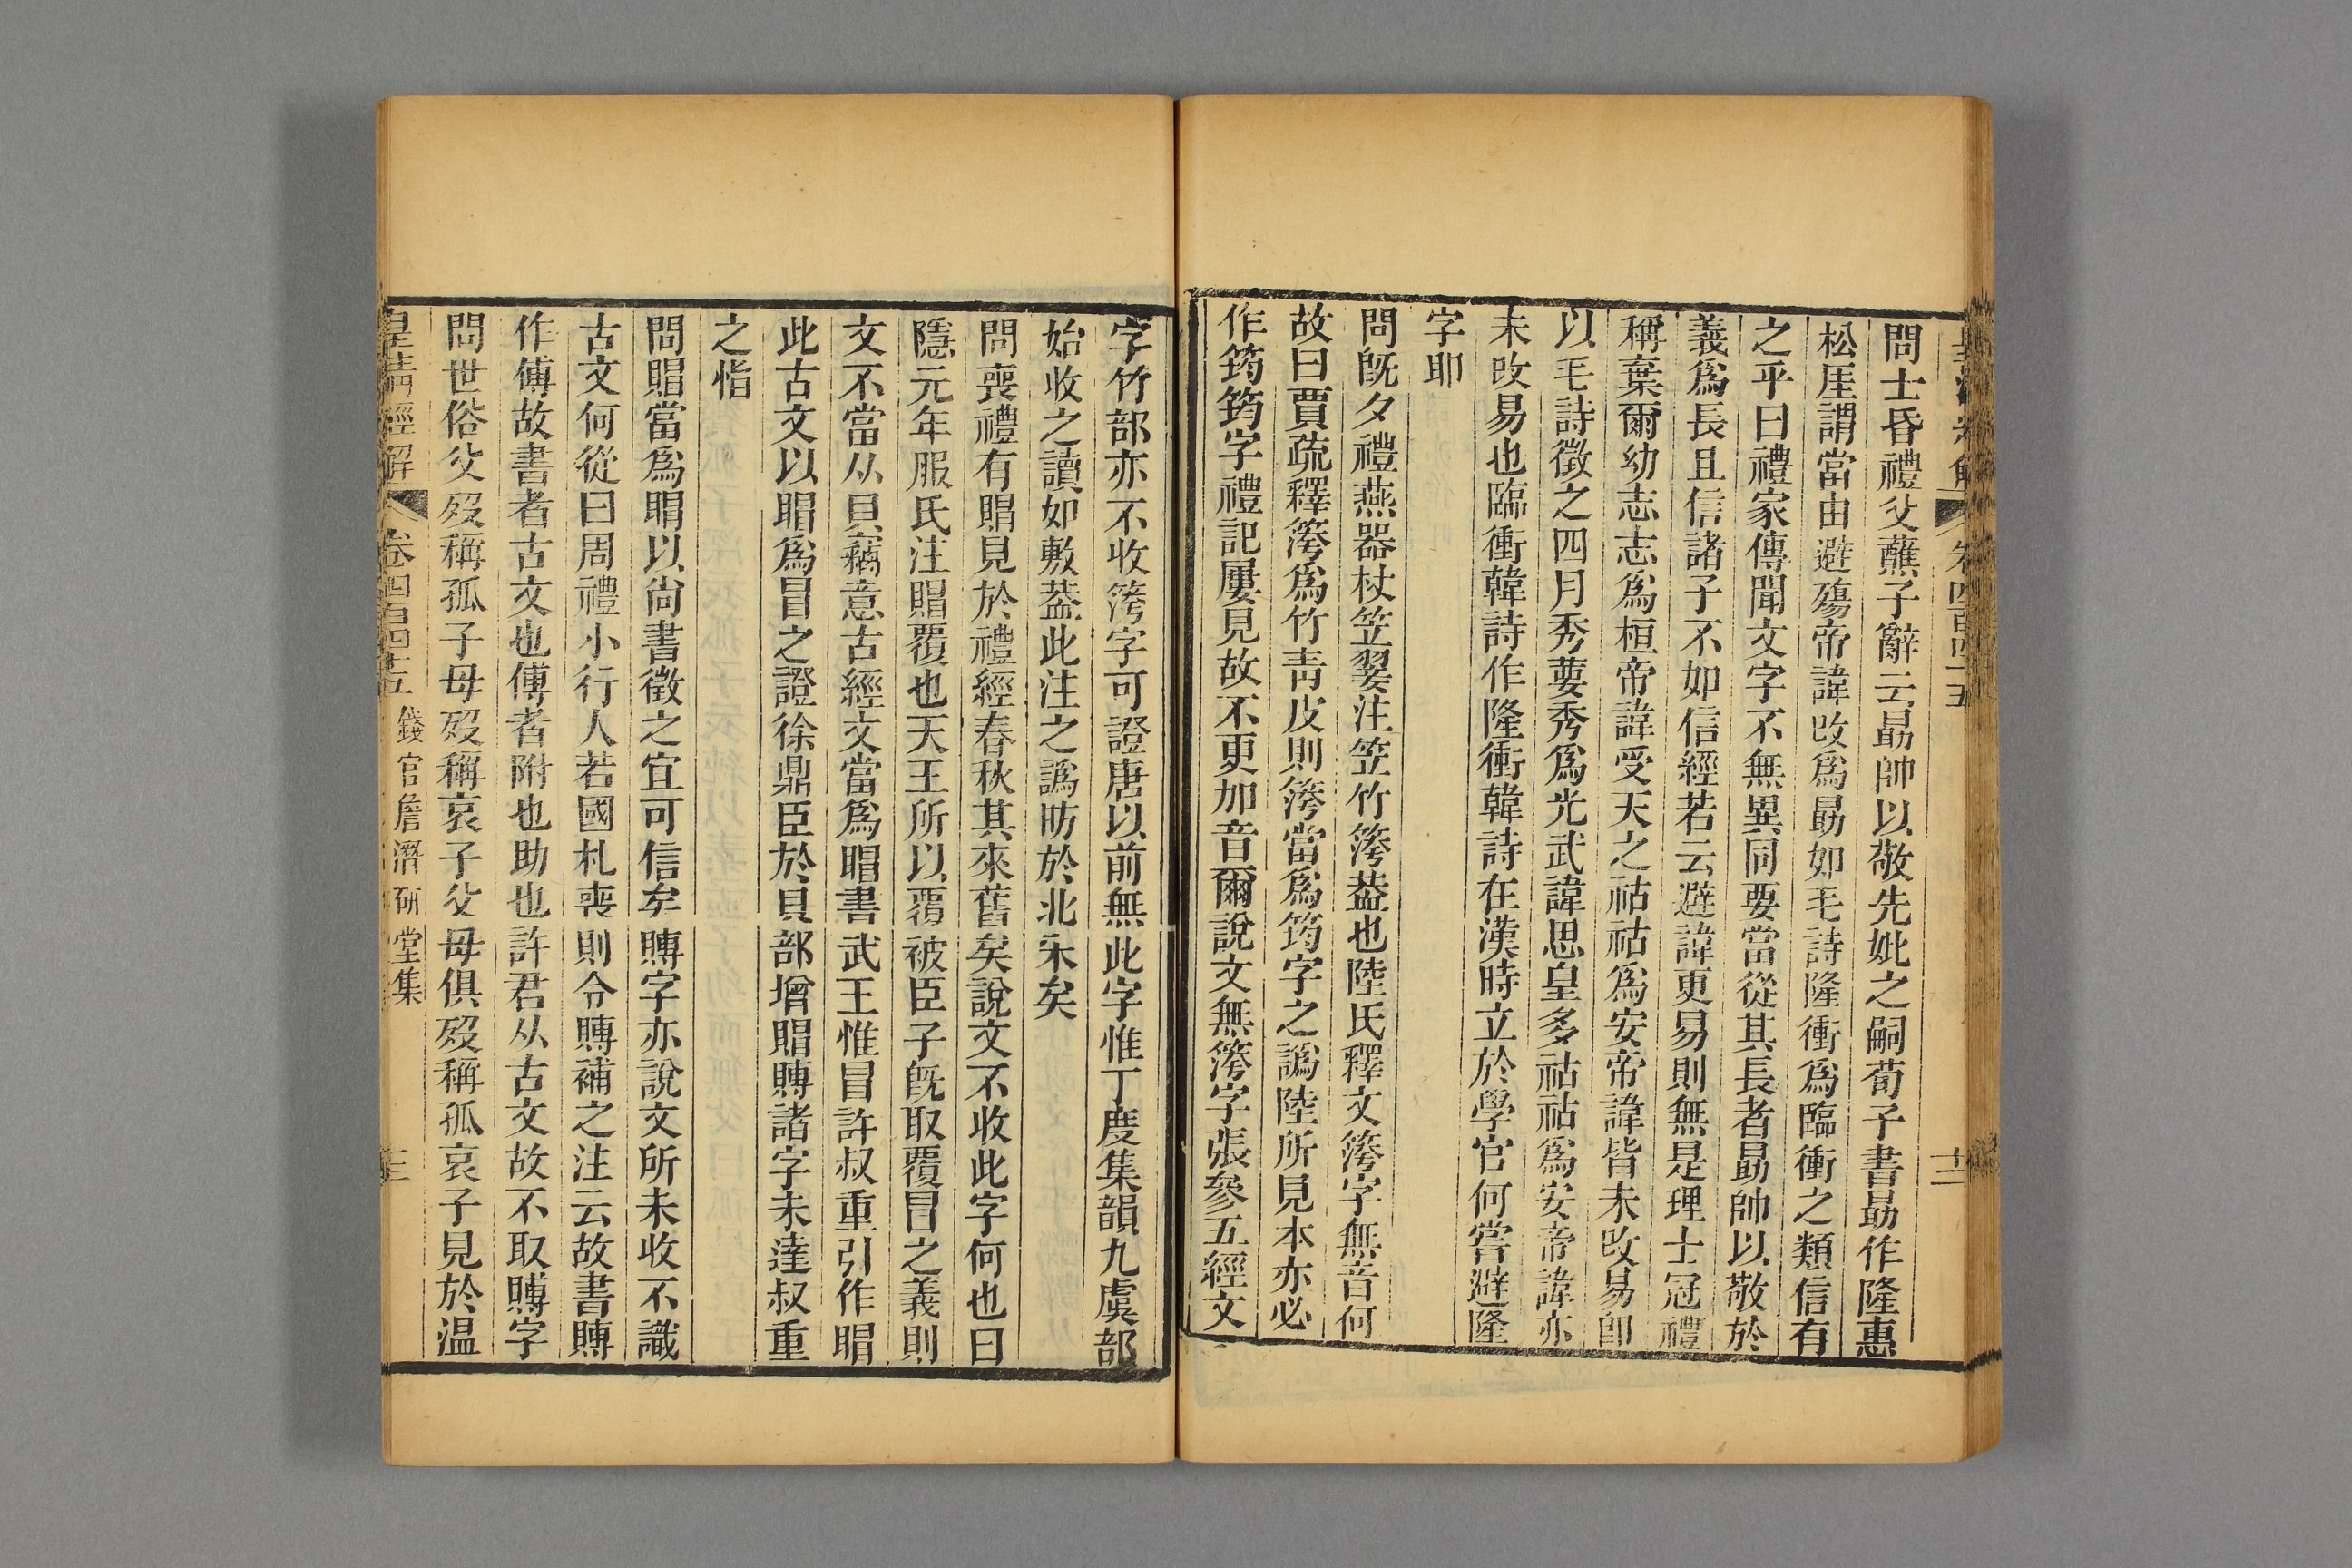 問士昏禮父蘸子辭云勗帥以敬先妣之嗣荀子書勗作隆惠
松厓謂當由避殤帝諱改爲勗如毛詩隆衝爲臨衝之類信有
之乎曰禮家傳聞文字不無異同要當從其長者勗帥以敬於
義爲長且信諸子不如信經若云避諱更易則無是理士冠禮
稱棄爾幼志志爲桓帝諱受天之祜祜爲安帝諱皆未改易卽
以毛詩徵之四月秀葽秀爲光武諱思皇多祜祜爲安帝諱亦
未改易也臨衝韓詩作隆衝韓詩在漢時立於學官何嘗避隆
字耶
問旣夕禮燕器杖笠翣注笠竹䈀葢也陸氏釋文䈀字無音何
故曰賈疏釋䈀爲竹靑皮則䈀當爲筠字之譌陸所見本亦必
作筠筠字禮記屢見故不更加音爾說文無䈀字張參五經文
字竹部亦不收䈀字可證唐以前無此字惟丁度集韻九虞部
始收之讀如敷葢此注之譌昉於北宋矣
問喪禮有賵見於禮經春秋其來舊矣說文不收此字何也曰
隱元年服氏注賵覆也天王所以覆被臣子旣取覆冒之義則
文不當从貝竊意古經文當爲䀦書武王惟冒許叔重引作䀦
此古文以䀦爲冒之證徐鼎臣於貝部增賵賻諸字未達叔重
之恉
問賵當爲䀦以尙書徵之宜可信矣賻字亦說文所未收不識
古文何從曰周禮小行人若國札喪則令賻補之注云故書賻
作傅故書者古文也傅者附也助也許君从古文故不取賻字
問世俗父歿稱孤子母歿稱哀子父母俱歿稱孤哀子見於温
皇淸經解 卷四百四十五 錢官詹潛硏堂集 十三